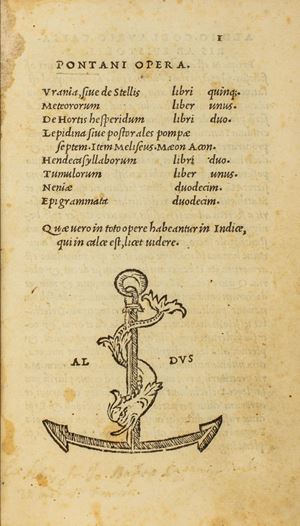 1
PONTANI OPERA.
Vrania, siue de Stellis libri quinq;.
Meteororum liber unus.
De Hortis hesperidum libri duo.
Lepidina siue postorales pompæ
septem. Item Meliseus. Mæon Acon.
Hendecasyllaborum libri duo.
Tumulorum liber unus.
Neniæ duodecim.
Epigrammata duodecim.
Quæ uero in toto opere habeantur in Indice,
qui in calce est, licet uidere.
AL DVS